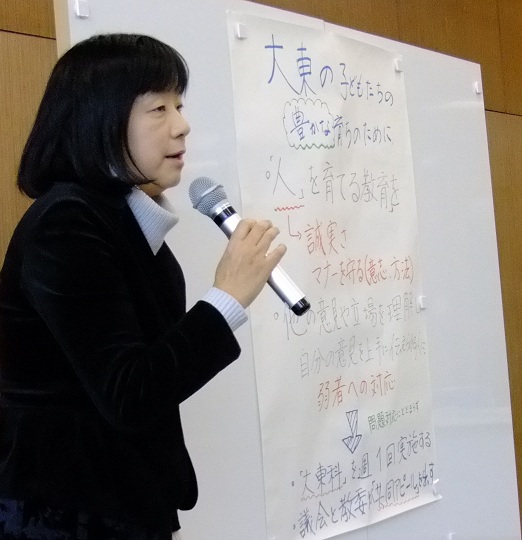 大東の子どもたちの
豊かな育ちのために
「人」を育てる教育を
→誠実さ
マナーを守る(意志・方法)
・他の意見や立場を理解
自分の意見を上手に
弱者への対応
・「大東科」を週1回実施する
・議会と教委が共同アピールを出す